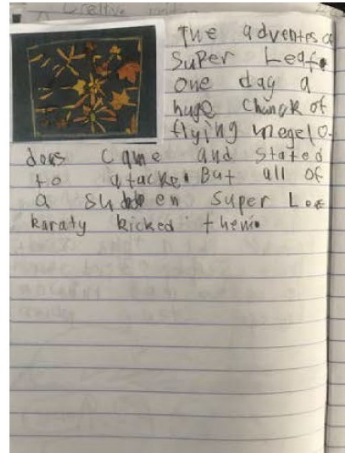 Creative
The adventrs a
Super Leaf.
one day a
huge chanck of
flying megelo
dons came and stated
to atacke. But all of
a sudden super Lee
karaty kicked them.